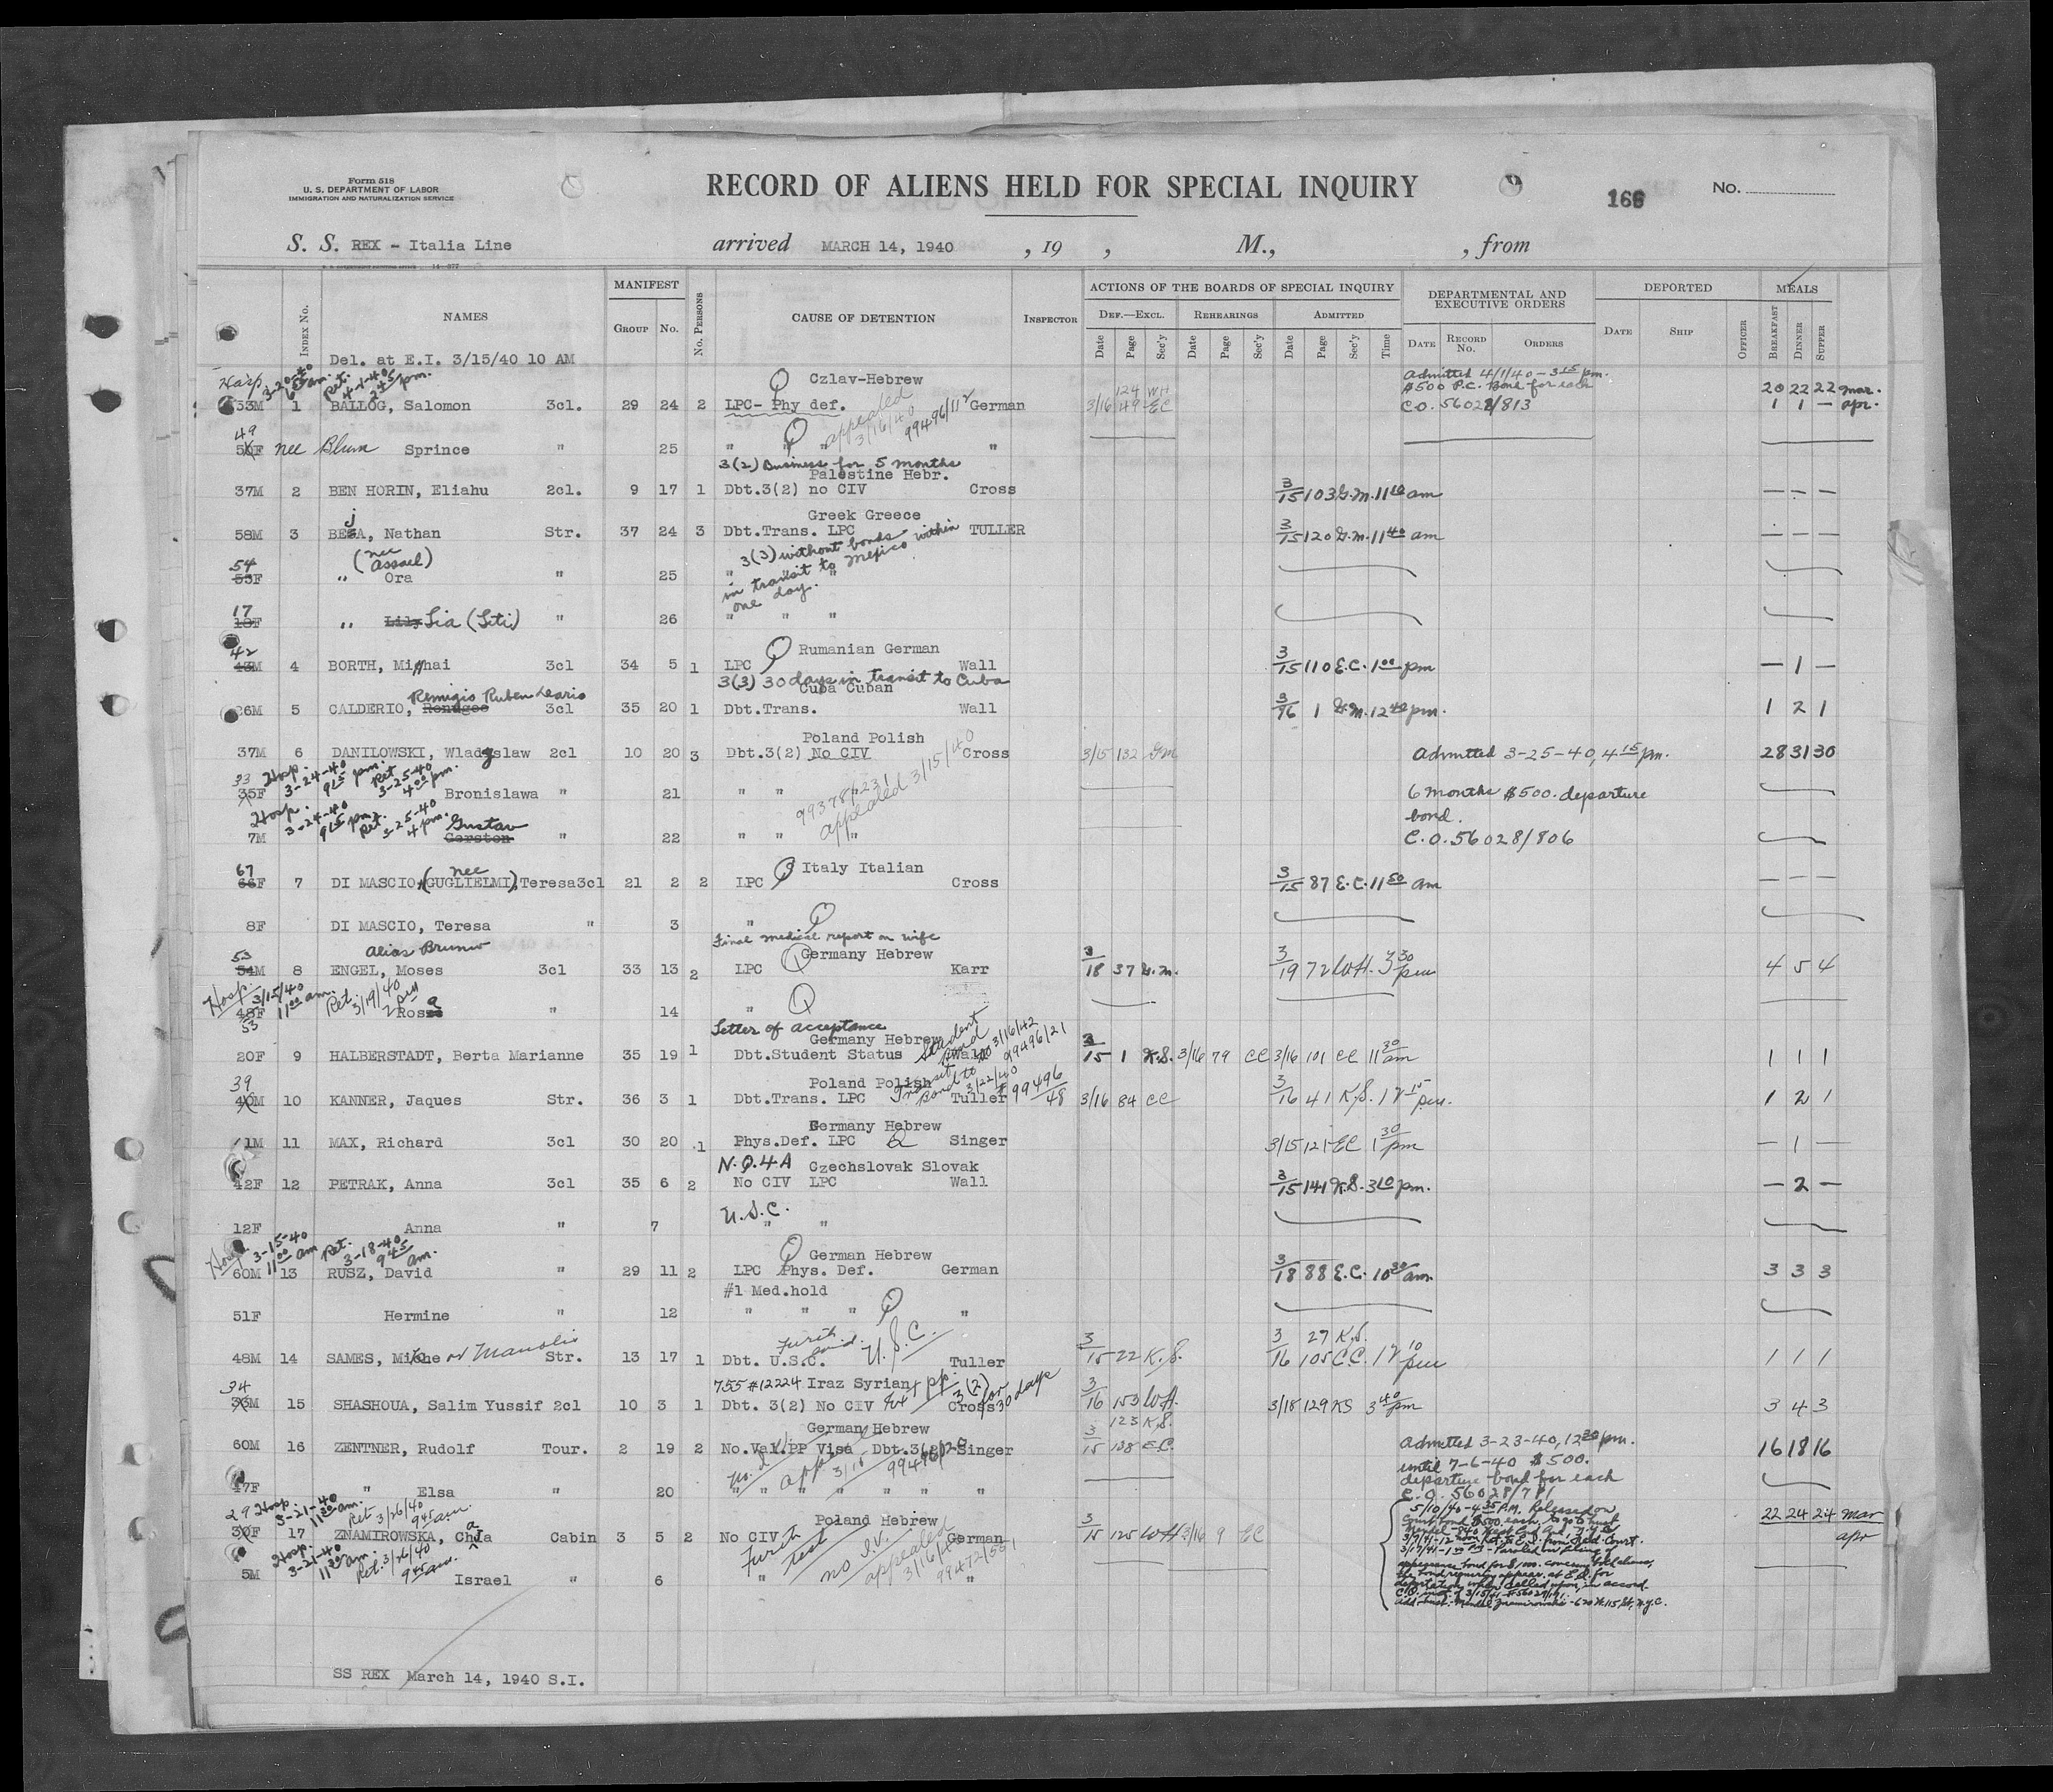 Form 518
U. S. DEPARTMENT OF LABOR
IMMIGRATION AND NATURALIZATION SERVICE
RECORD OF ALIENS HELD FOR SPECIAL INQUIRY
166
No.
S. S. REX - Italia Line arrived MARCH 14, 1940 , 19 , M., , from
MANIFEST ACTIONS OF THE BOARDS OF SPECIAL INQUIRY DEPARTMENTAL AND EXECUTIVE ORDERS DEPORTED MEALS
Index No. NAMES Group No. No. Persons CAUSE OF DETENTION Inspector Def.—Excl. Rehearings Admitted
Date Page Sec'y Date Page Sec'y Date Page Sec'y Time Date Record No. Orders Date Ship Officer Breakfast Dinner Supper
Del. at E.I. 3/15/40 10 AM
Hosp. 3-20-40 am. Ret. 4-1-40 2 45 pm. Czlav-Hebrew 124 WH Admitted 4/1/40 - 3 15 pm.
$500 P.C. Bond for each 20 22 22 Mar.
33M 1 BALLOG, Salomon 3cl. 29 24 2 LPC- Phy def. German 3/16 149 EC C.O. 56028/813 1 1 — Apr.
appealed 3/16/40 99496/112
49
50F nee Blum Sprince " 25 " " " "
3(2) Business for 5 months
Palestine Hebr.
37M 2 BEN HORIN, Eliahu 2cl. 9 17 1 Dbt.3(2) no CIV Cross 3/15 103 G.M. 11 10 am — — —
Greek Greece
58M 3 BEJA, Nathan Str. 37 24 3 Dbt.Trans. LPC TULLER 3/15 120 G.M. 11 40 am — — —
3(3) without bonds within
in transit to Mexico
one day.
54 (nee Assael)
53F " Ora " 25 " "
17
18F " Lily Lia (Liti) " 26 " " "
42 Rumanian German
43M 4 BORTH, Mihai 3cl 34 5 1 LPC Wall 3/15 110 E.C. 1 00 pm — 1 —
3(3) 30 days in transit to Cuba
Remigio Ruben Learis Cuba Cuban
26M 5 CALDERIO, 3cl 35 20 1 Dbt.Trans. Wall 3/16 1 G.M. 12 40 pm. 1 2 1
Poland Polish
37M 6 DANILOWSKI, Wladyslaw 2cl 10 20 3 Dbt.3(2) No CIV Cross 3/15 132 GM Admitted 3-25-40, 4 15 pm. 28 31 30
33 Hosp. 3-24-40 9 15 pm. Ret 3-25-40 4 00 pm.
35F Bronislawa " 21 " " " 6 months $500. departure
99378/231 appealed 3/15/40
bond.
Hosp. 3-24-40 9 15 pm. Ret. 3-25-40 4 pm. Gustav
7M Gerston " 22 " " " C.O. 56028/806
67 nee Italy Italian
66F 7 DI MASCIO,(GUGLIELMI),Teresa 3cl 21 2 2 LPC Cross 3/15 87 E.C. 11 50 am — — —
8F DI MASCIO, Teresa " 3 "
Final medical report on wife
53 Alias Bruno Germany Hebrew
54M 8 ENGEL, Moses 3cl 33 13 2 LPC Karr 3/18 37 G.M. 3/19 72 W.H. 3 30 pm 4 5 4
Hosp. 3/15/40 11 00 am. Ret. 3/19/40 2 pm
48F Rosa " 14 "
53
Letter of acceptance
Germany Hebrew
20F 9 HALBERSTADT, Berta Marianne 35 19 1 Dbt.Student Status Wall 3/15 1 K.S. 3/16 79 CC 3/16 101 CC 11 30 am 1 1 1
Student Bond to 3/16/42 99496/21
39 Poland Polish
40M 10 KANNER, Jaques Str. 36 3 1 Dbt.Trans. LPC Tuller 3/16 84 CC 3/16 41 K.S. 12 15 pm. 1 2 1
Transit Bond to 3/22/40 #99496/48
Germany Hebrew
41M 11 MAX, Richard 3cl 30 20 1 Phys.Def. LPC Singer 3/15 121 EC 1 30 pm — 1 —
N.Q.4A Czechslovak Slovak
42F 12 PETRAK, Anna 3cl 35 6 2 No CIV LPC Wall 3/15 141 K.S. 3 10 pm. — 2 —
U.S.C.
12F Anna " 7 " "
Hosp. 3-15-40 11 00 am Ret. 3-18-40 9 45 am. German Hebrew
60M 13 RUSZ, David " 29 11 2 LPC Phys. Def. German 3/18 88 E.C. 10 30 am. 3 3 3
#1 Med.hold
51F Hermine " 12 " " " "
U.S.C. 27 K.S.
48M 14 SAMES, Mike or Manolis Str. 13 17 1 Dbt. U.S.C. Tuller 3/15 22 K.S. 3/16 105 C.C. 12 10 pm 1 1 1
34 755 #12224 Iraz Syrian 3(2) for 30 days
33M 15 SHASHOUA, Salim Yussif 2cl 10 3 1 Dbt. 3(2) No CIV Cross 3/16 153 W.H. 3/18 129 KS 3 40 pm 3 4 3
German Hebrew 123 K.S.
60M 16 ZENTNER, Rudolf Tour. 2 19 2 No.Val.PP Visa Dbt.3(2) Singer 3/15 138 E.C. Admitted 3-23-40, 12 30 pm. 16 18 16
until 7-6-40 $500.
departure bond for each
47F " Elsa " 20 " " " " " " C.O. 56028/781
29 Hosp. 3-21-40 11 30 am. Ret 3/26/40 9 45 am. Poland Hebrew 5/10/40 - 4 35 P.M. Released on 22 24 24 Mar
30F 17 ZNAMIROWSKA, Chaja Cabin 3 5 2 No CIV German 3/15 125 WH 3/16 9 EC Apr
Furth test no I.V. appealed 3/16/40
Hosp. 3-21-40 11 30 am. Ret. 3/26/40 9 45 am.
5M Israel " 6 " "
appearance bond for $1000. covering both aliens,
SS REX March 14, 1940 S.I.